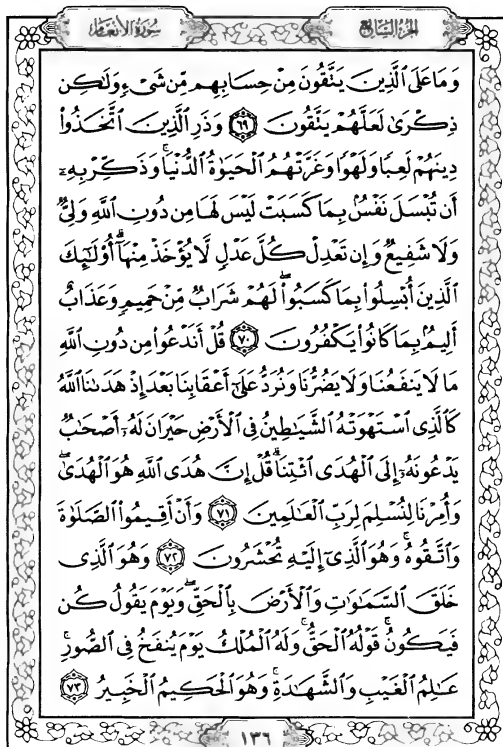 سُورَةُ الأَنْعَام
الجُزْءُ السَّابِعُ
وَمَا عَلَى ٱلَّذِينَ يَتَّقُونَ مِنْ حِسَابِهِم مِّن شَىْءٍ وَلَٰكِن
ذِكْرَىٰ لَعَلَّهُمْ يَتَّقُونَ ٦٩ وَذَرِ ٱلَّذِينَ ٱتَّخَذُوا۟
دِينَهُمْ لَعِبًا وَلَهْوًا وَغَرَّتْهُمُ ٱلْحَيَوٰةُ ٱلدُّنْيَا ۚ وَذَكِّرْ بِهِۦٓ
أَن تُبْسَلَ نَفْسٌۢ بِمَا كَسَبَتْ لَيْسَ لَهَا مِن دُونِ ٱللَّهِ وَلِىٌّ
وَلَا شَفِيعٌ وَإِن تَعْدِلْ كُلَّ عَدْلٍ لَّا يُؤْخَذْ مِنْهَآ ۗ أُو۟لَٰٓئِكَ
ٱلَّذِينَ أُبْسِلُوا۟ بِمَا كَسَبُوا۟ ۖ لَهُمْ شَرَابٌ مِّنْ حَمِيمٍ وَعَذَابٌ
أَلِيمٌۢ بِمَا كَانُوا۟ يَكْفُرُونَ ٧٠ قُلْ أَنَدْعُوا۟ مِن دُونِ ٱللَّهِ
مَا لَا يَنفَعُنَا وَلَا يَضُرُّنَا وَنُرَدُّ عَلَىٰٓ أَعْقَابِنَا بَعْدَ إِذْ هَدَىٰنَا ٱللَّهُ
كَٱلَّذِى ٱسْتَهْوَتْهُ ٱلشَّيَٰطِينُ فِى ٱلْأَرْضِ حَيْرَانَ لَهُۥٓ أَصْحَٰبٌ
يَدْعُونَهُۥٓ إِلَى ٱلْهُدَى ٱئْتِنَا ۗ قُلْ إِنَّ هُدَى ٱللَّهِ هُوَ ٱلْهُدَىٰ ۖ
وَأُمِرْنَا لِنُسْلِمَ لِرَبِّ ٱلْعَٰلَمِينَ ٧١ وَأَنْ أَقِيمُوا۟ ٱلصَّلَوٰةَ
وَٱتَّقُوهُ ۚ وَهُوَ ٱلَّذِىٓ إِلَيْهِ تُحْشَرُونَ ٧٢ وَهُوَ ٱلَّذِى
خَلَقَ ٱلسَّمَٰوَٰتِ وَٱلْأَرْضَ بِٱلْحَقِّ ۖ وَيَوْمَ يَقُولُ كُن
فَيَكُونُ ۚ قَوْلُهُ ٱلْحَقُّ ۚ وَلَهُ ٱلْمُلْكُ يَوْمَ يُنفَخُ فِى ٱلصُّورِ ۚ
عَٰلِمُ ٱلْغَيْبِ وَٱلشَّهَٰدَةِ ۚ وَهُوَ ٱلْحَكِيمُ ٱلْخَبِيرُ ٧٣
١٣٦